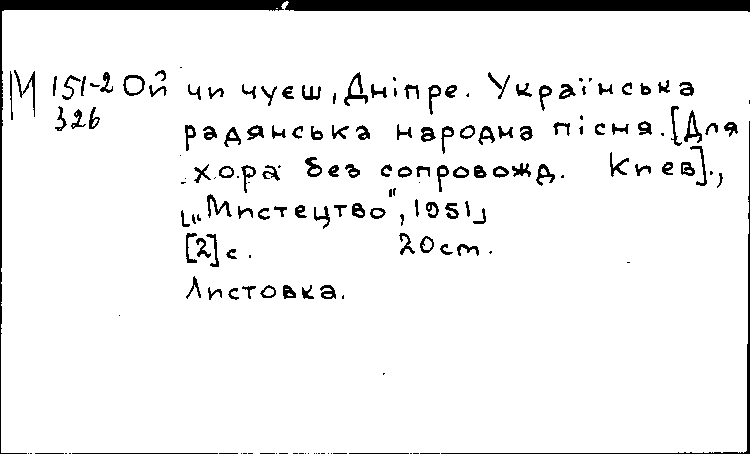 М 151-2 Ой чи чуєш, Дніпре. Українська
326 радянська народна пісня. [Для
хора без сопровожд. Киев].,
[„Мистецтво", 1951]
[2] с. 20 ст.
Листовка.